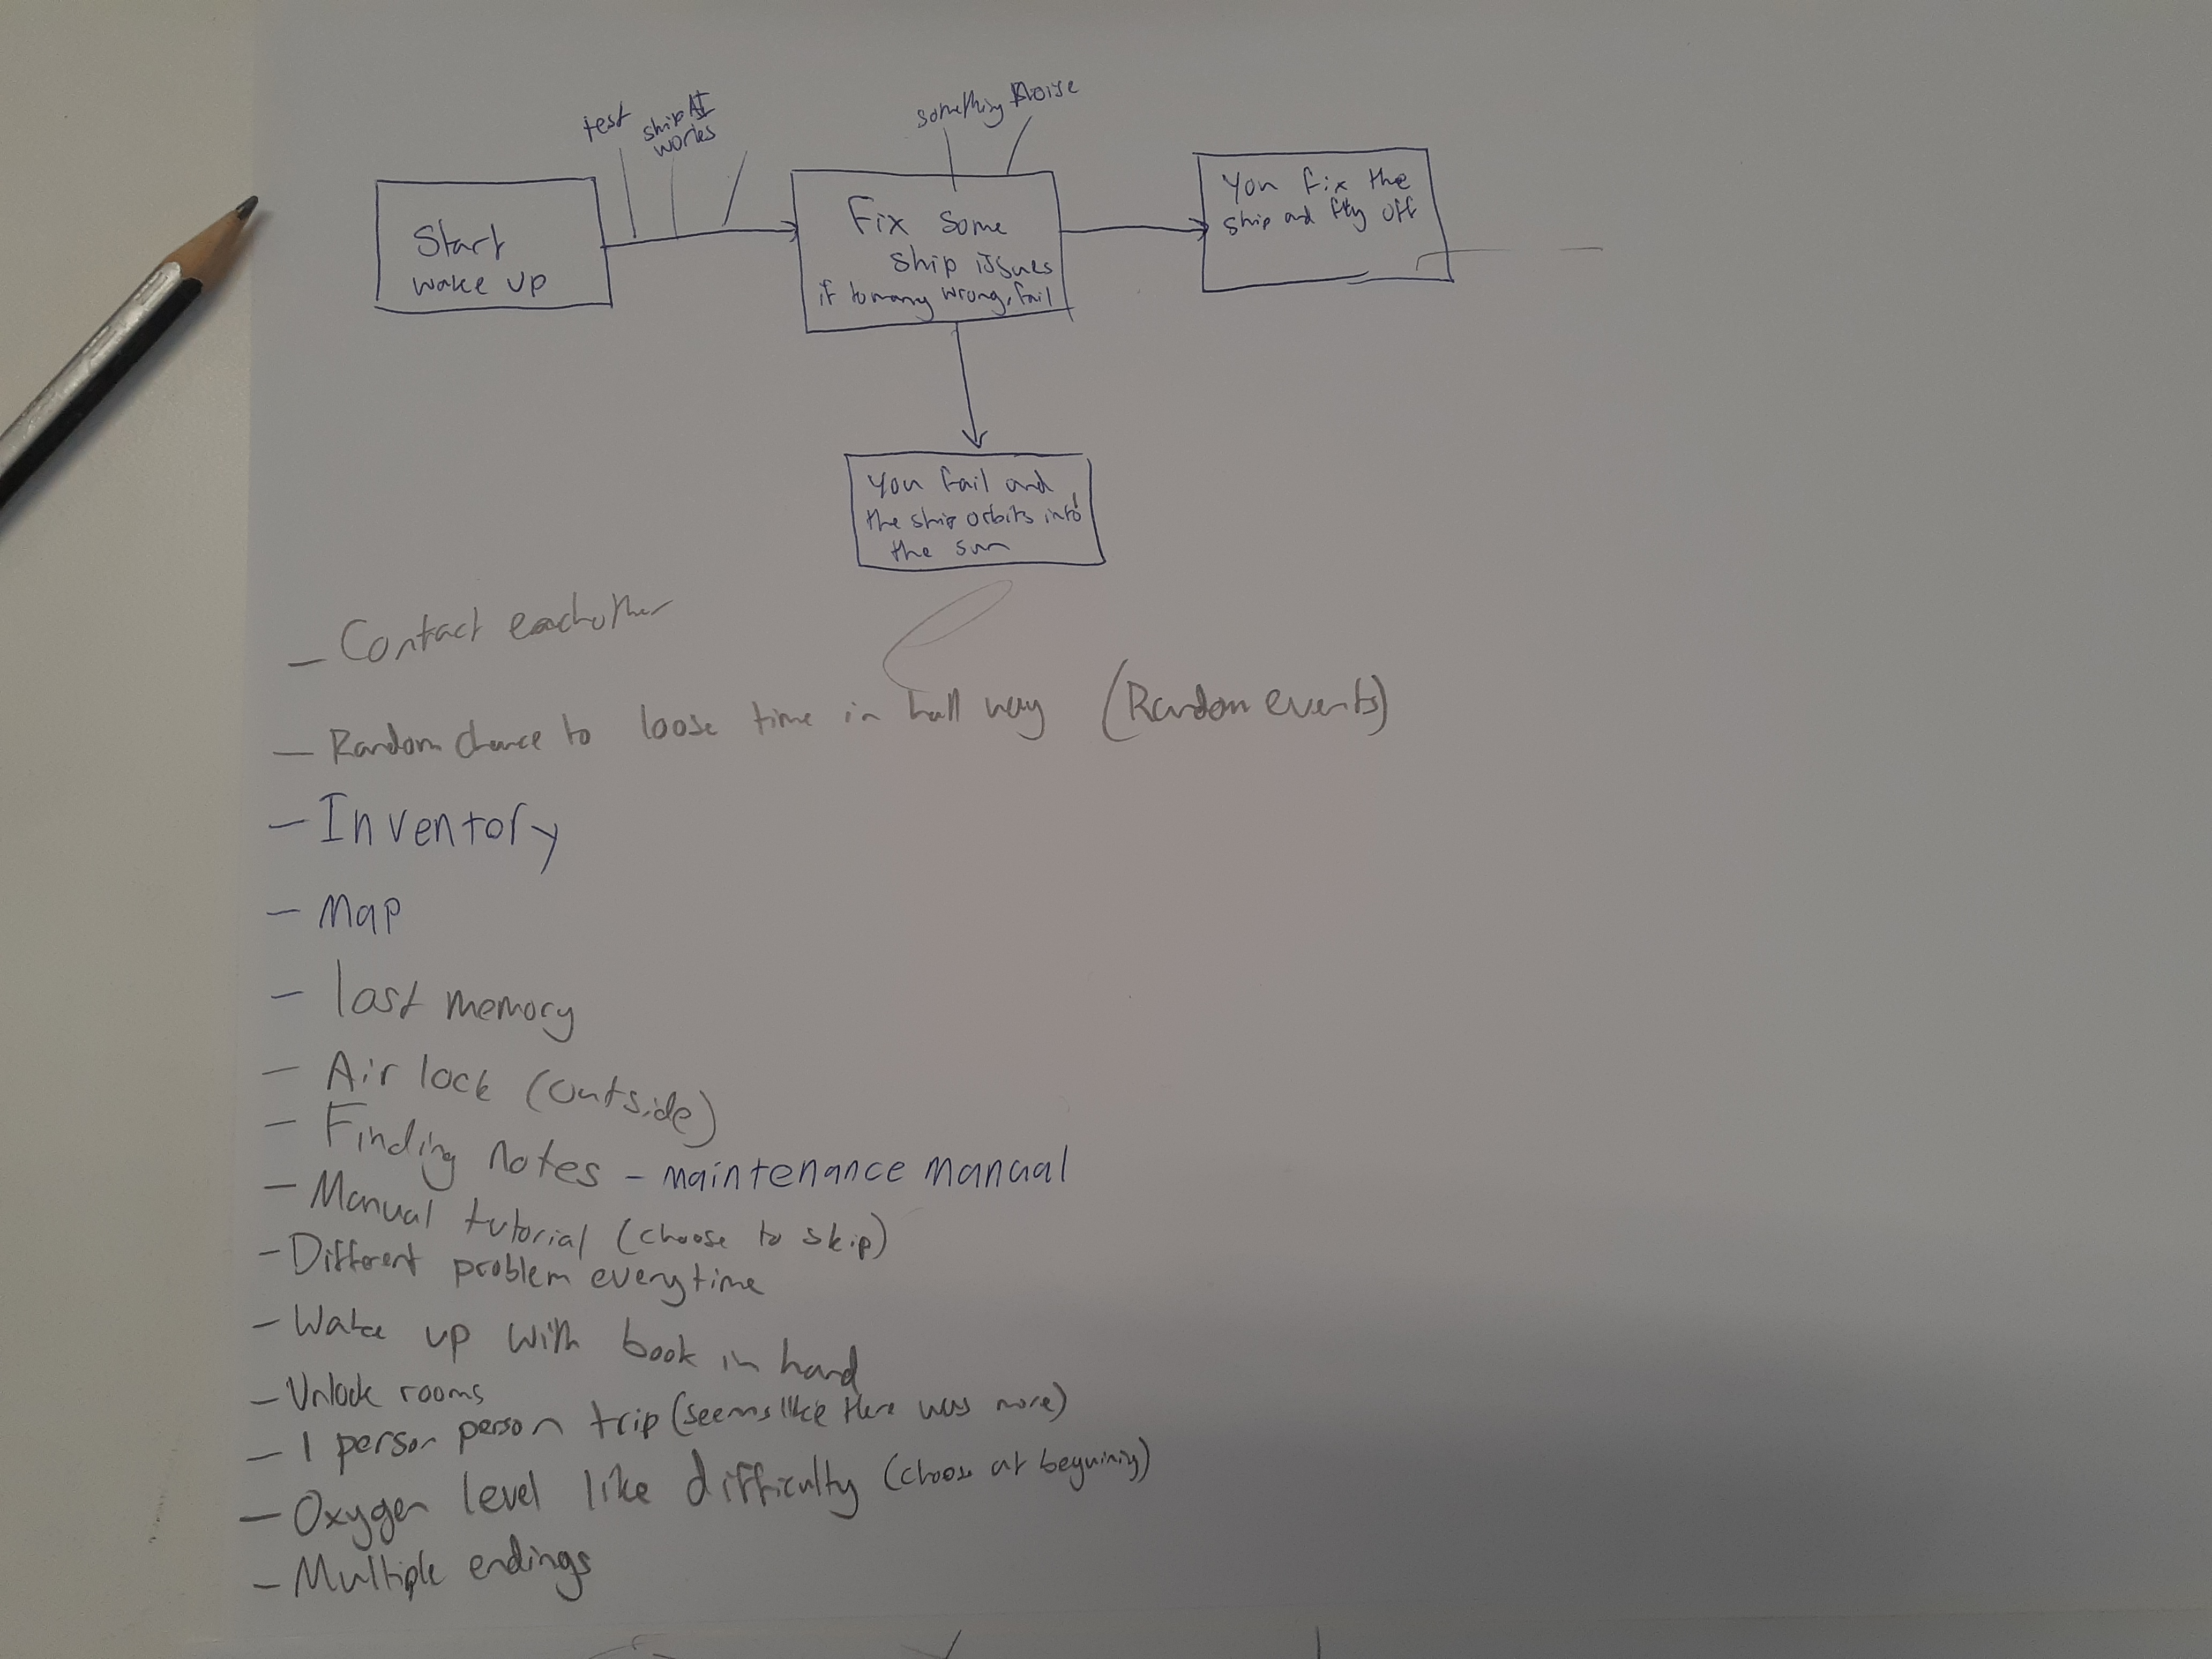 test
ship AI
works
something
Noise
Start
wake up
Fix some
ship issues
if to many wrong, fail
You fix the
ship and fly off
You fail and
the ship orbits into
the sun
- Contact eachother
- Random chance to loose time in hall way (Random events)
- Inventory
- Map
- last memory
- Air lock (outside)
- Finding notes - maintenance manual
- Manual tutorial (choose to skip)
- Different problem everytime
- Wake up with book in hand
- Unlock rooms
- 1 person person trip (seems like there was more)
- Oxygen level like difficulty (choose at beguining)
- Multiple endings